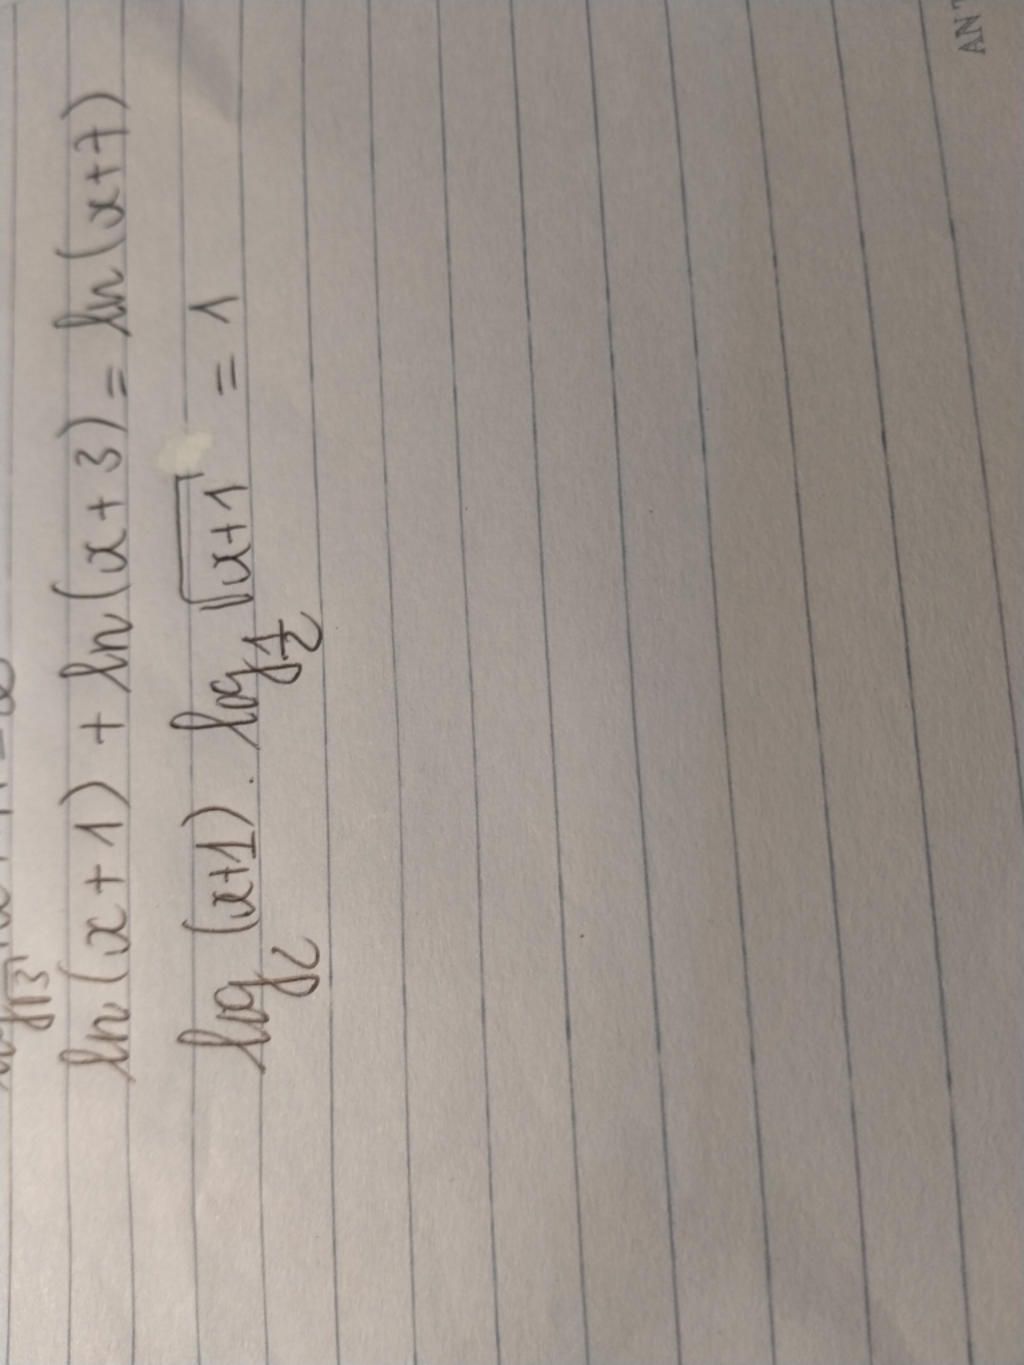 ln(x+1) + ln(x+3) = ln(x+7)
log₂(x+1) . log_{1/2} √(x+1) = 1